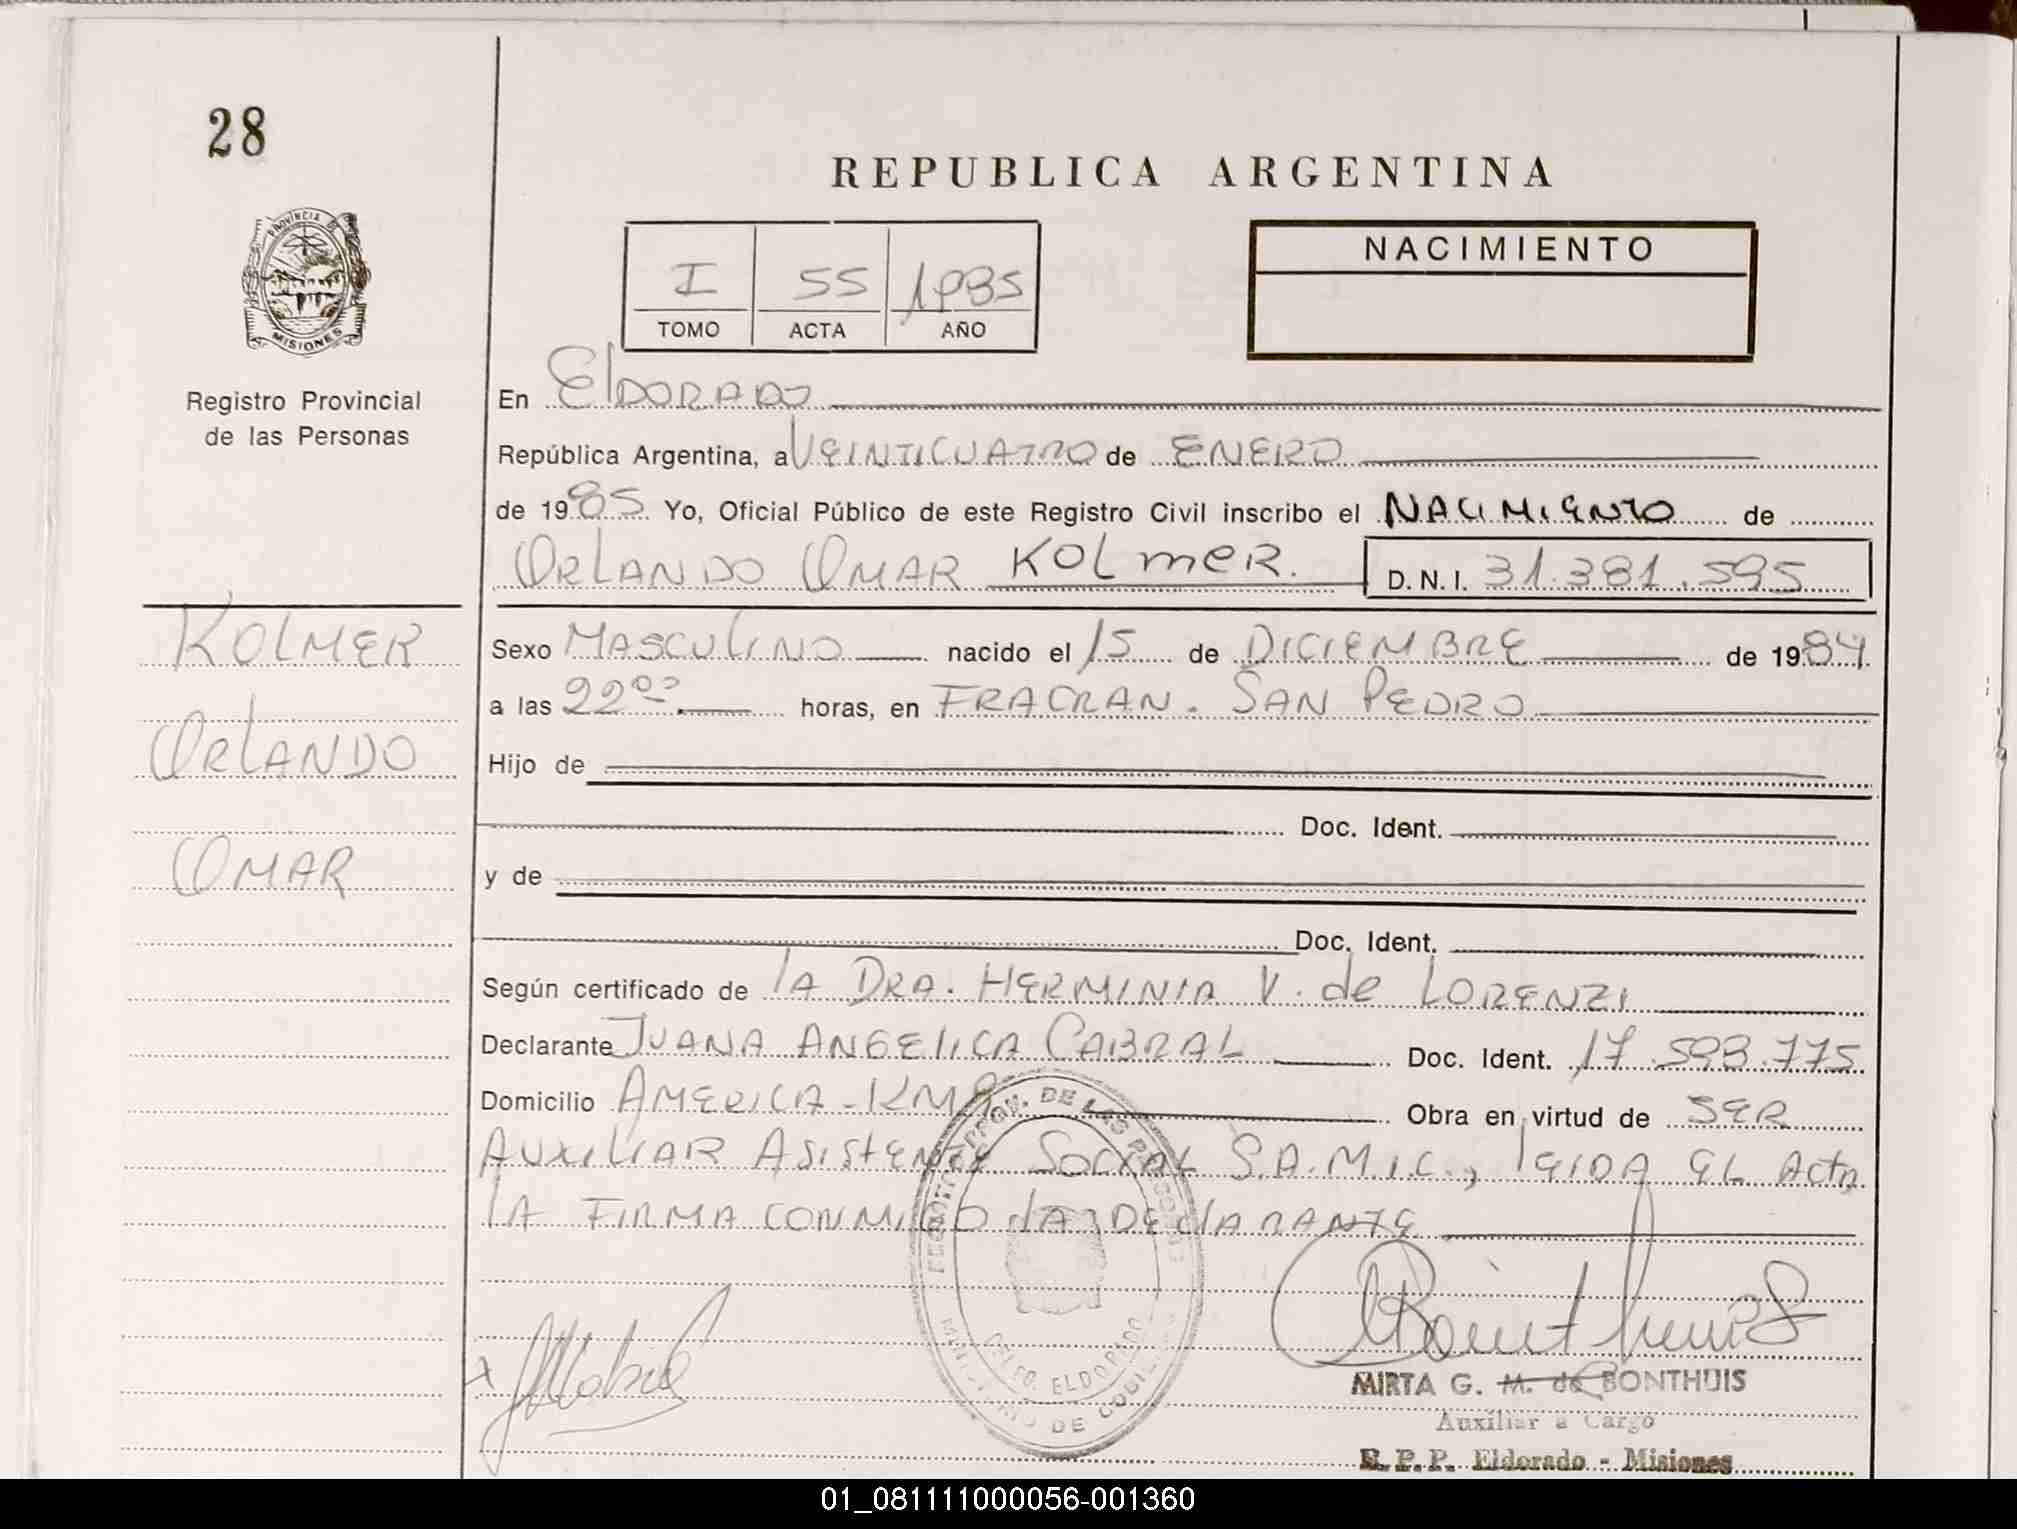 28
REPUBLICA ARGENTINA
PROVINCIA DE
MISIONES
I 55 1985
TOMO ACTA AÑO
NACIMIENTO
Registro Provincial
de las Personas
En ELDORADO
República Argentina, a VEINTICUATRO de ENERO
de 1985 Yo, Oficial Público de este Registro Civil inscribo el NACIMIENTO de
ORLANDO OMAR KOLMER. D.N.I. 31.381.595
KOLMER
ORLANDO
OMAR
Sexo MASCULINO nacido el 15 de DICIEMBRE de 1984
a las 22°° horas, en FRACRAN. SAN PEDRO
Hijo de
Doc. Ident.
y de
Doc. Ident.
Según certificado de LA DRA. HERMINIA V. de LORENZI
Declarante JUANA ANGELICA CABRAL Doc. Ident. 17.598.775
Domicilio AMERICA - KM 9 Obra en virtud de SER
AUXILIAR ASISTENTE SOCIAL S.A.M.I.C., LEIDA EL Acta
LA FIRMA CONMIGO LA DECLARANTE
MIRTA G. M. de BONTHUIS
Auxiliar a Cargo
R.P.P. Eldorado - Misiones
01_081111000056-001360